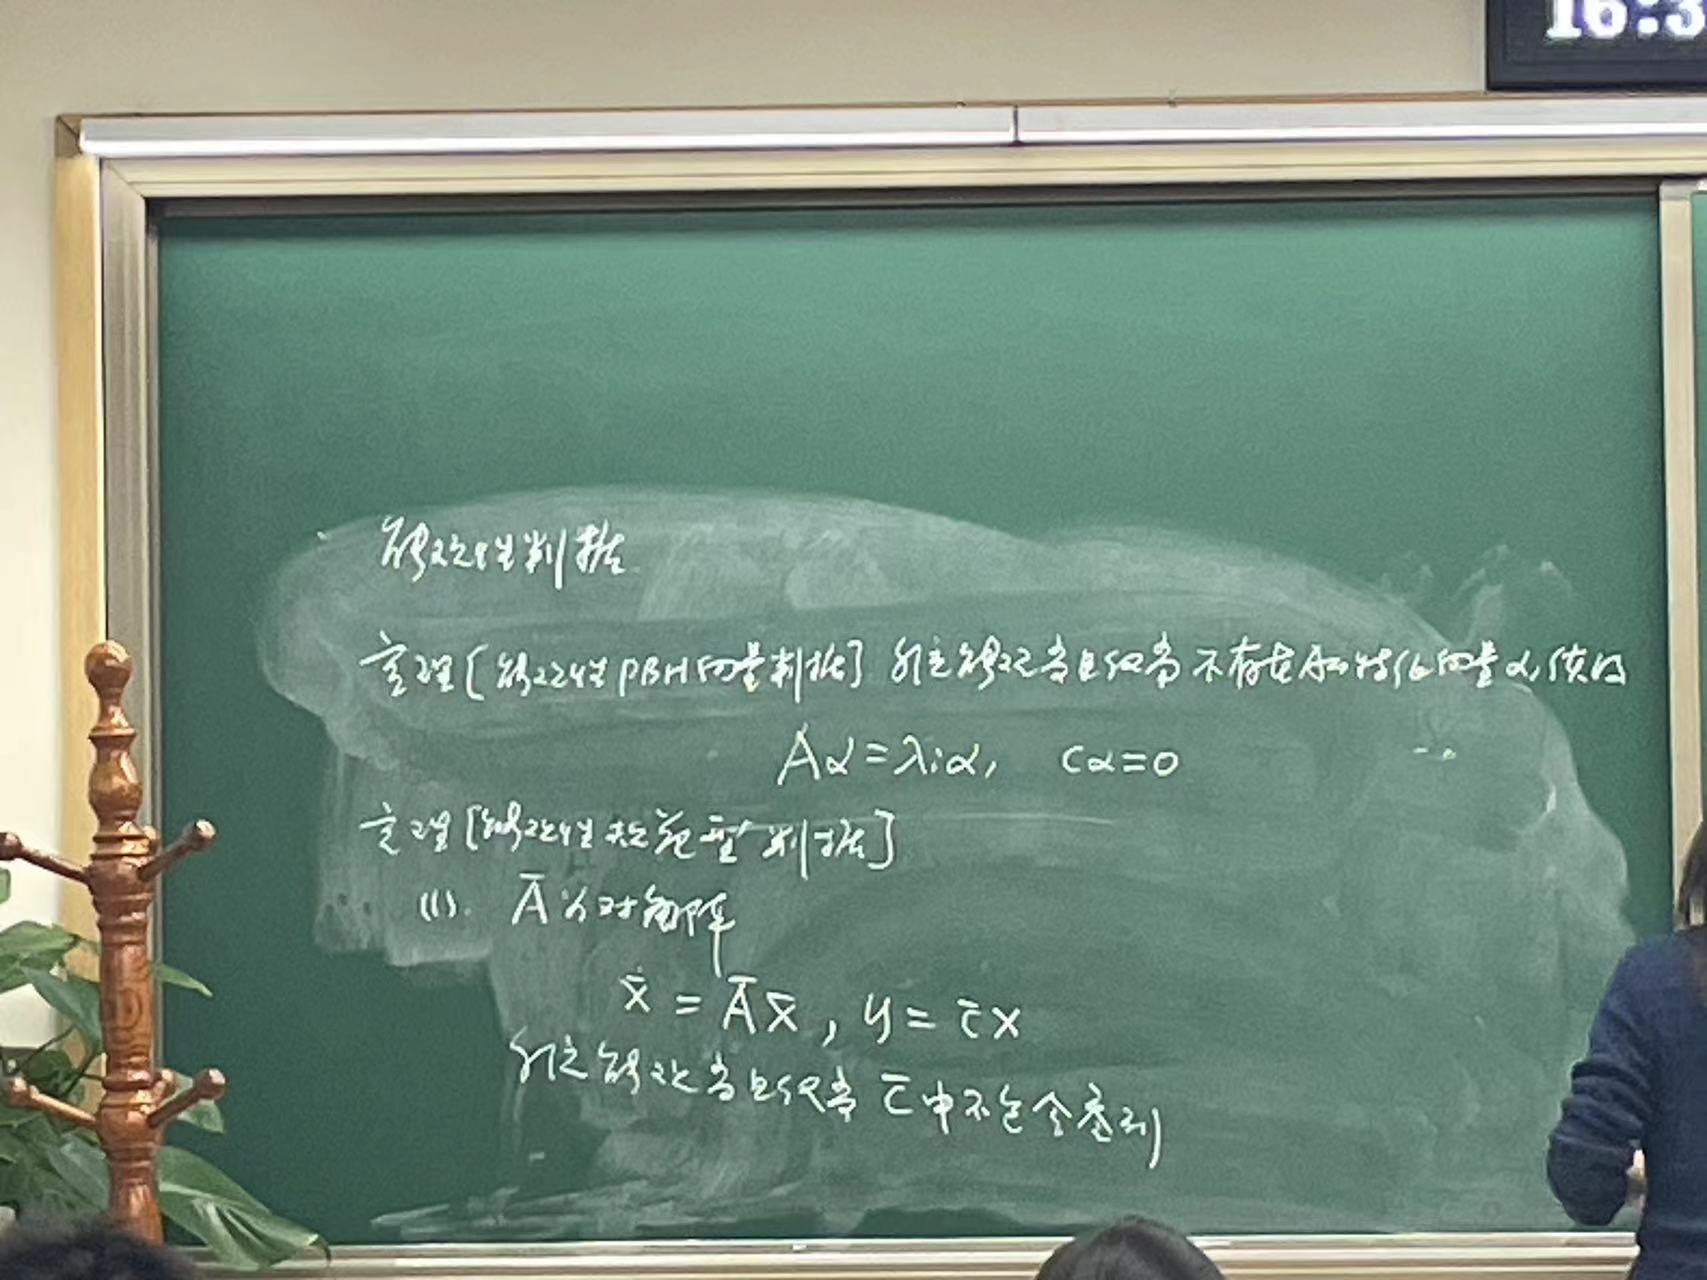 16:3
能观性判据
定理[能观性PBH向量判据] 系统能观当且仅当不存在A的特征向量α,使得
Aα=λiα, cα=0
定理[能观性规范型判据]
(1). A̅为对角阵
ẋ = A̅x̅, y = c̅x
系统能观当且仅当 c̅中不包含全零列